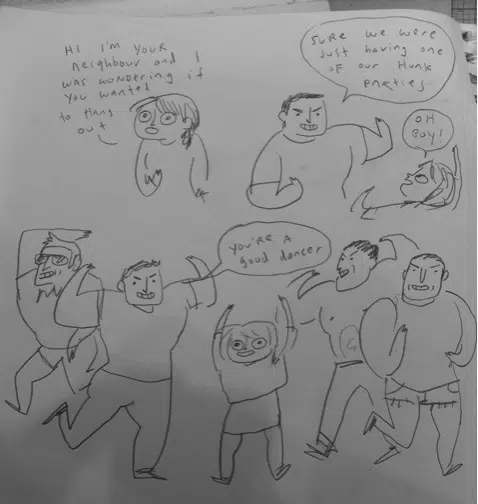 HI I'M YOUR
neighbour and I
was wondering if
you wanted
to Hang
out
Sure we were
Just having one
of our Hunk
parties
OH
Boy!
You're A
good dancer